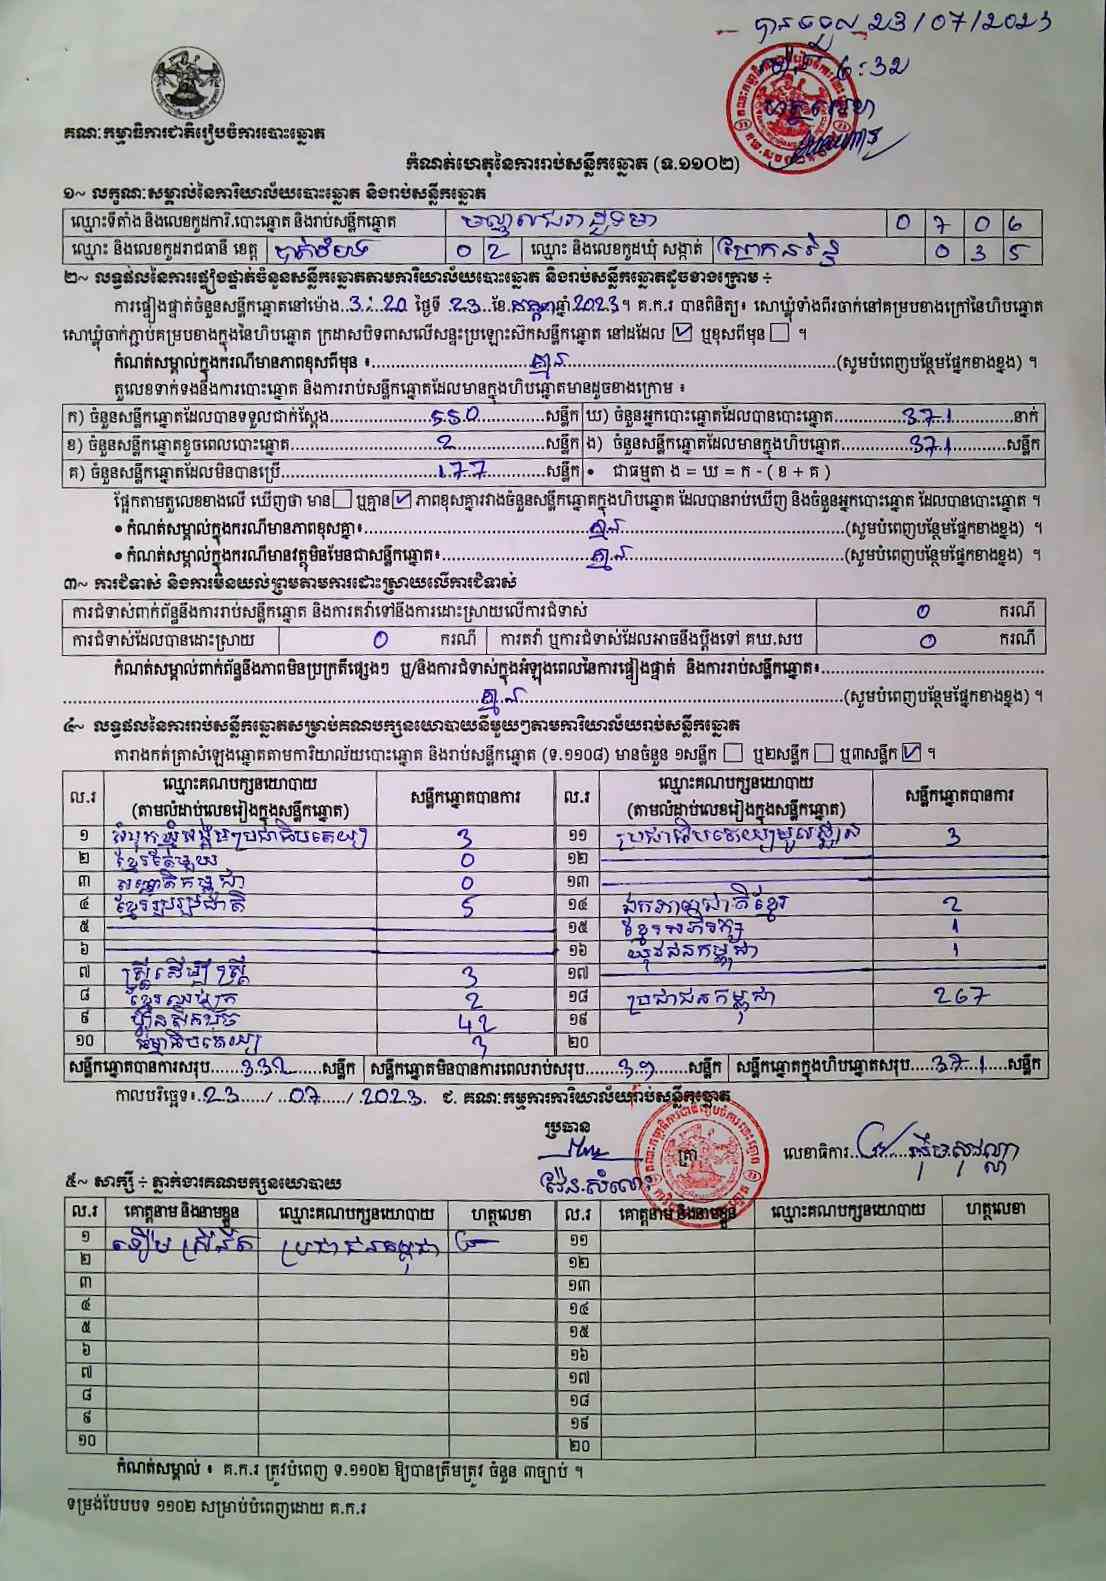 បានទទួល 23/07/2023
ម៉ោង 6:32
ហត្ថលេខា
គណៈកម្មាធិការជាតិរៀបចំការបោះឆ្នោត
កំណត់ហេតុនៃការរាប់សន្លឹកឆ្នោត (ទ.១១០២)
១~ លក្ខណៈសម្គាល់នៃការិយាល័យបោះឆ្នោត និងរាប់សន្លឹកឆ្នោត
ឈ្មោះទីតាំង និងលេខកូដការិ.បោះឆ្នោត និងរាប់សន្លឹកឆ្នោត 0 7 0 6
ឈ្មោះ និងលេខកូដរាជធានី ខេត្ត បាត់ដំបង 0 2 ឈ្មោះ និងលេខកូដឃុំ សង្កាត់ ព្រែកនរិន្ទ 0 3 5
២~ លទ្ធផលនៃការផ្ទៀងផ្ទាត់ចំនួនសន្លឹកឆ្នោតតាមការិយាល័យបោះឆ្នោត និងរាប់សន្លឹកឆ្នោតដូចខាងក្រោម ÷
ការផ្ទៀងផ្ទាត់ចំនួនសន្លឹកឆ្នោតនៅម៉ោង 3:20 ថ្ងៃទី 23 ខែ កក្កដា ឆ្នាំ 2023 ។ គ.ក.រ បានពិនិត្យ៖ សោឃ្លុំទាំងពីរចាក់នៅគម្របខាងក្រៅនៃហិបឆ្នោត
សោឃ្លុំចាក់ភ្ជាប់គម្របខាងក្នុងនៃហិបឆ្នោត ក្រដាសបិទពាសលើសន្ទះប្រឡោះស៊កសន្លឹកឆ្នោត នៅដដែល ☑ ឬខុសពីមុន ☐ ។
កំណត់សម្គាល់ក្នុងករណីមានភាពខុសពីមុន ៖ គ្មាន (សូមបំពេញបន្ថែមផ្នែកខាងខ្នង) ។
តួលេខទាក់ទងនឹងការបោះឆ្នោត និងការរាប់សន្លឹកឆ្នោតដែលមានក្នុងហិបឆ្នោតមានដូចខាងក្រោម ៖
ក) ចំនួនសន្លឹកឆ្នោតដែលបានទទួលជាក់ស្តែង 550 សន្លឹក ឃ) ចំនួនអ្នកបោះឆ្នោតដែលបានបោះឆ្នោត 371 នាក់
ខ) ចំនួនសន្លឹកឆ្នោតខូចពេលបោះឆ្នោត 2 សន្លឹក ង) ចំនួនសន្លឹកឆ្នោតដែលមានក្នុងហិបឆ្នោត 371 សន្លឹក
គ) ចំនួនសន្លឹកឆ្នោតដែលមិនបានប្រើ 177 សន្លឹក • ជាធម្មតា ង = ឃ = ក - ( ខ + គ )
ផ្អែកតាមតួលេខខាងលើ ឃើញថា មាន ☐ ឬគ្មាន ☑ ភាពខុសគ្នារវាងចំនួនសន្លឹកឆ្នោតក្នុងហិបឆ្នោត ដែលបានរាប់ឃើញ និងចំនួនអ្នកបោះឆ្នោត ដែលបានបោះឆ្នោត ។
• កំណត់សម្គាល់ក្នុងករណីមានភាពខុសគ្នា៖ គ្មាន (សូមបំពេញបន្ថែមផ្នែកខាងខ្នង) ។
• កំណត់សម្គាល់ក្នុងករណីមានវត្ថុមិនមែនជាសន្លឹកឆ្នោត៖ គ្មាន (សូមបំពេញបន្ថែមផ្នែកខាងខ្នង) ។
៣~ ការជំទាស់ និងការមិនយល់ព្រមតាមការដោះស្រាយលើការជំទាស់
ការជំទាស់ពាក់ព័ន្ធនឹងការរាប់សន្លឹកឆ្នោត និងការតវ៉ាទៅនឹងការដោះស្រាយលើការជំទាស់ 0 ករណី
ការជំទាស់ដែលបានដោះស្រាយ 0 ករណី ការតវ៉ា ឬការជំទាស់ដែលអាចនឹងប្តឹងទៅ គឃ.សប 0 ករណី
កំណត់សម្គាល់ពាក់ព័ន្ធនឹងភាពមិនប្រក្រតីផ្សេងៗ ឬ/និងការជំទាស់ក្នុងអំឡុងពេលនៃការផ្ទៀងផ្ទាត់ និងការរាប់សន្លឹកឆ្នោត៖
គ្មាន (សូមបំពេញបន្ថែមផ្នែកខាងខ្នង) ។
៤~ លទ្ធផលនៃការរាប់សន្លឹកឆ្នោតសម្រាប់គណបក្សនយោបាយនីមួយៗតាមការិយាល័យរាប់សន្លឹកឆ្នោត
តារាងកត់ត្រាសំឡេងឆ្នោតតាមការិយាល័យបោះឆ្នោត និងរាប់សន្លឹកឆ្នោត (ទ.១១០៨) មានចំនួន ១សន្លឹក ☐ ឬ២សន្លឹក ☐ ឬ៣សន្លឹក ☑ ។
ល.រ ឈ្មោះគណបក្សនយោបាយ (តាមលំដាប់លេខរៀងក្នុងសន្លឹកឆ្នោត) សន្លឹកឆ្នោតបានការ ល.រ ឈ្មោះគណបក្សនយោបាយ (តាមលំដាប់លេខរៀងក្នុងសន្លឹកឆ្នោត) សន្លឹកឆ្នោតបានការ
១ សំបុកឃ្មុំសង្គមប្រជាធិបតេយ្យ 3 ១១ ប្រជាធិបតេយ្យមូលដ្ឋាន 3
២ ខ្មែរតែមួយ 0 ១២
៣ សញ្ជាតិកម្ពុជា 0 ១៣
៤ ខ្មែររួបរួមជាតិ 5 ១៤ ឯកភាពជាតិខ្មែរ 2
៥ ១៥ ខ្មែរអភិរក្ស 1
៦ ១៦ យុវជនកម្ពុជា 1
៧ ស្ត្រីដើម្បីស្ត្រី 3 ១៧
៨ ខ្មែរឈប់ក្រ 2 ១៨ ប្រជាជនកម្ពុជា 267
៩ ហ៊្វុនស៊ិនប៉ិច 42 ១៩
១០ ធម្មាធិបតេយ្យ 3 ២០
សន្លឹកឆ្នោតបានការសរុប 332 សន្លឹក សន្លឹកឆ្នោតមិនបានការពេលរាប់សរុប 39 សន្លឹក សន្លឹកឆ្នោតក្នុងហិបឆ្នោតសរុប 371 សន្លឹក
កាលបរិច្ឆេទ៖ 23 / 07 / 2023 ជ. គណៈកម្មការការិយាល័យរាប់សន្លឹកឆ្នោត
ប្រធាន
ត្រា
លេខាធិការ
៥~ សាក្សី ÷ ភ្នាក់ងារគណបក្សនយោបាយ
ល.រ គោត្តនាម និងនាមខ្លួន ឈ្មោះគណបក្សនយោបាយ ហត្ថលេខា ល.រ គោត្តនាម និងនាមខ្លួន ឈ្មោះគណបក្សនយោបាយ ហត្ថលេខា
១ ប្រជាជនកម្ពុជា ១១
២ ១២
៣ ១៣
៤ ១៤
៥ ១៥
៦ ១៦
៧ ១៧
៨ ១៨
៩ ១៩
១០ ២០
កំណត់សម្គាល់ ៖ គ.ក.រ ត្រូវបំពេញ ទ.១១០២ ឱ្យបានត្រឹមត្រូវ ចំនួន ៣ច្បាប់ ។
ទម្រង់បែបបទ ១១០២ សម្រាប់បំពេញដោយ គ.ក.រ